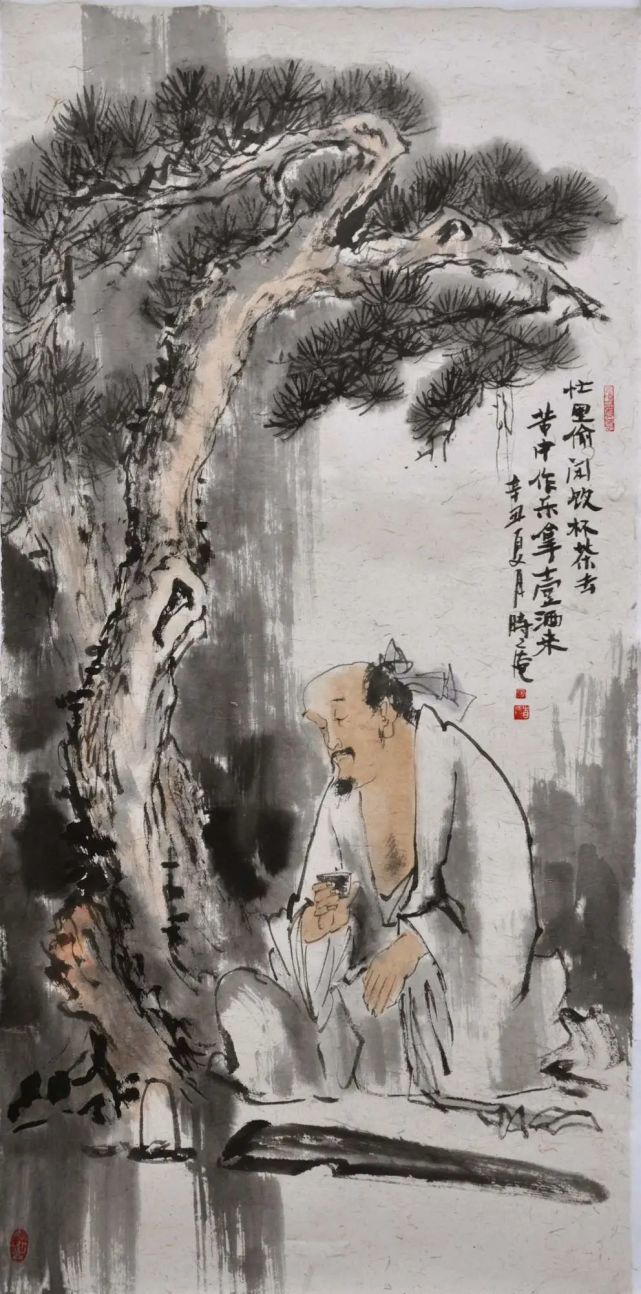 忙里偷闲饮杯茶去
苦中作乐拿壺酒来
辛丑夏月時之庵